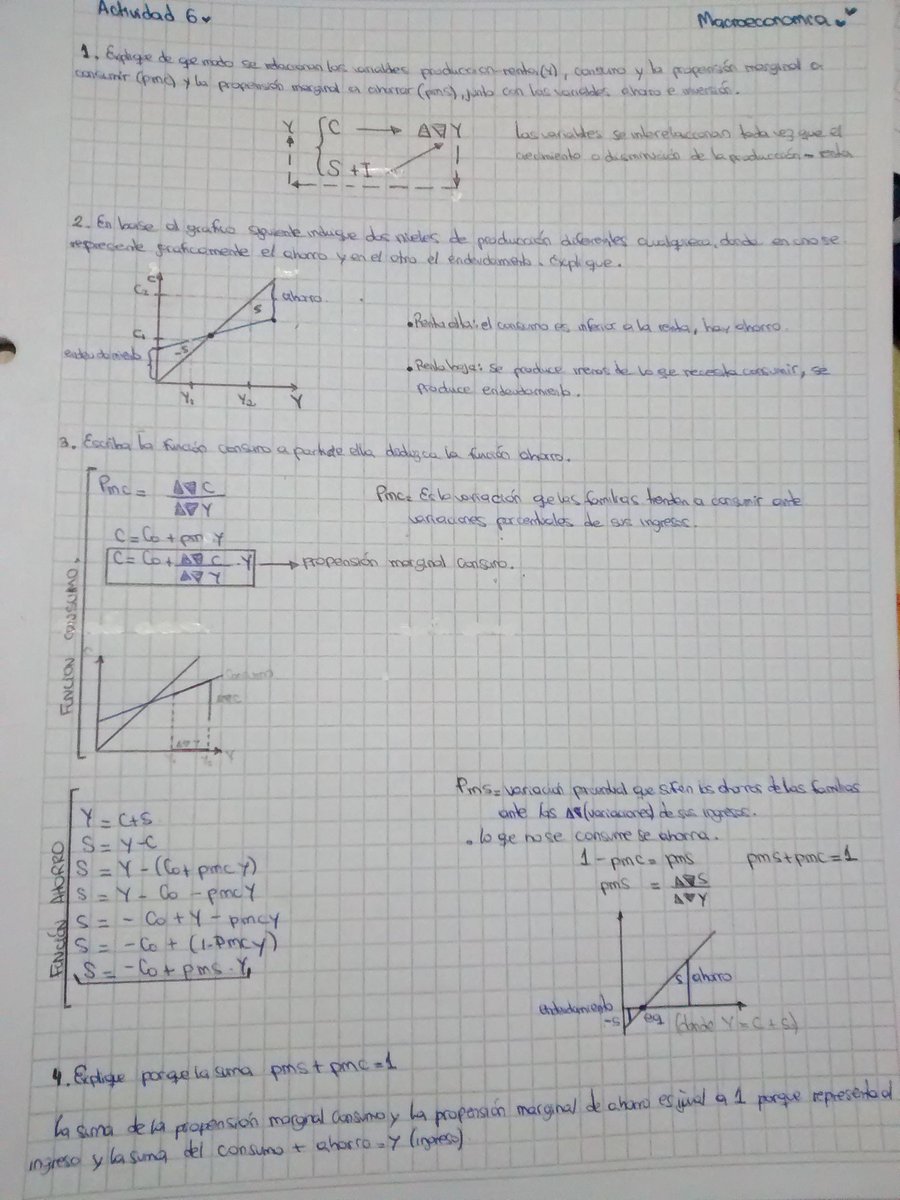 Actividad 6.
Macroeconomica.
1. Explique de qe modo se relacionan las variables produccion-renta(Y), consumo y la propensión marginal a
consumir (pmc) y la propensión marginal a ahorrar (pms), junto con las variables ahorro e inversión.
Y { C → Δ∇ Y
S + I
las variables se interelaccionan toda vez que el
crecimiento o disminución de la producción - renta
2. En base al grafico siguiente indique dos niveles de producción diferentes cualquiera, donde en uno se
represente graficamente el ahorro y en el otro el endeudamiento. Explique.
C
C₂
ahorro
S
C₁
-S
endeudamiento
Y₁ Y₂ Y
• Renta alta: el consumo es inferior a la renta, hay ahorro.
• Renta baja: se produce menos de lo qe necesita consumir, se
produce endeudamiento.
3. Escriba la función consumo a partir de ella deduzca la función ahorro.
FUNCION CONSUMO.
Pmc = Δ∇ C / Δ∇ Y
Pmc = Es la variación qe las familias tienden a consumir ante
variaciones porcentuales de sus ingresos.
C = Co + pm Y
C = Co + Δ∇ C / Δ∇ Y . Y → propensión marginal consumo.
Δ∇ Y
Y
FUNCIÓN AHORRO
Y = C+S
S = Y-C
S = Y - (Co + pmc Y)
S = Y - Co - pmcY
S = - Co + Y - pmcY
S = - Co + (1-pmcY)
S = - Co + pms . Y
Pms = variacion porcentual que sufren los ahorros de las familias
ante las Δ∇ (variaciones) de sus ingresos.
• lo qe no se consume se ahorra.
1 - pmc = pms pms + pmc = 1
pms = Δ∇ S / Δ∇ Y
S ahorro
endeudamiento
-S eq (donde Y = C + S)
4. Explique porqe la suma pms + pmc = 1
La suma de la propensión marginal consumo y la propensión marginal de ahorro es igual a 1 porque representa al
ingreso y la suma del consumo + ahorro = Y (ingreso)